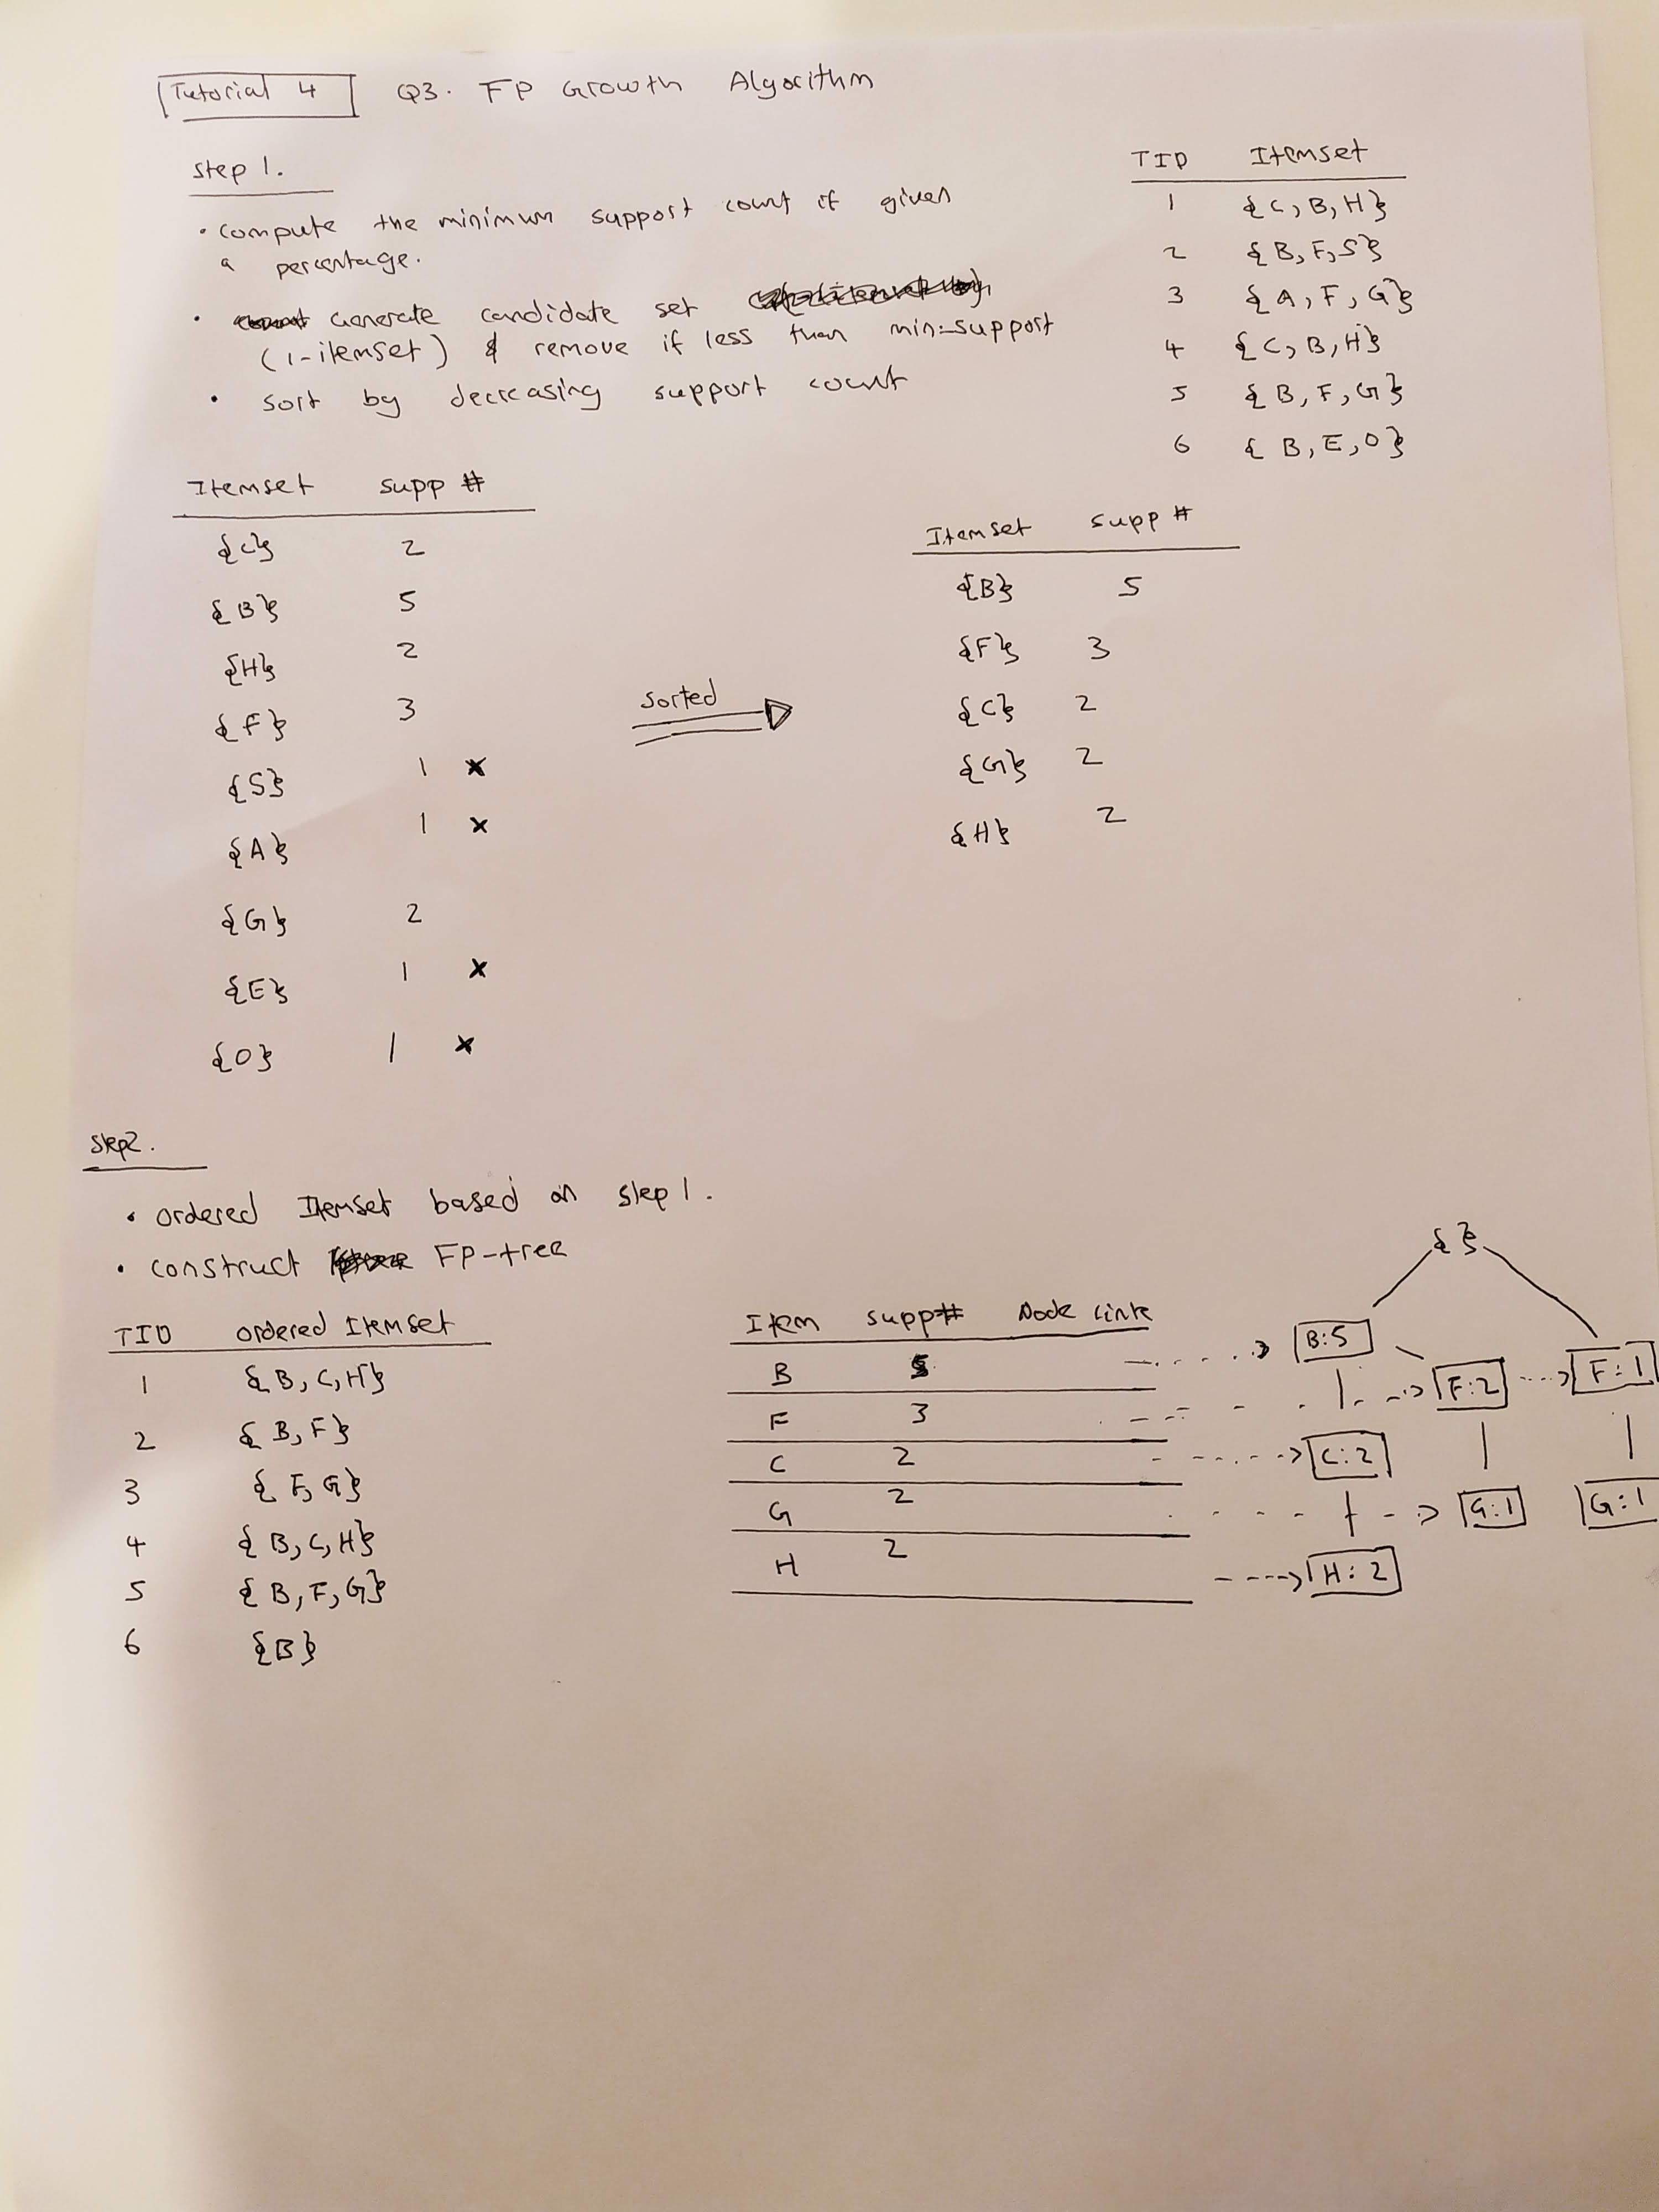 Tutorial 4 Q3. FP Growth Algorithm
Step 1.
• compute the minimum support count if given
a percentage.
• Generate candidate set
(1-itemset) & remove if less than min-support
• sort by decreasing support count
TID Itemset
1 {C, B, H}
2 {B, F, S}
3 {A, F, G}
4 {C, B, H}
5 {B, F, G}
6 {B, E, O}
Itemset supp #
{C} 2
{B} 5
{H} 2
{F} 3
{S} 1 x
{A} 1 x
{G} 2
{E} 1 x
{O} 1 x
sorted
Itemset supp #
{B} 5
{F} 3
{C} 2
{G} 2
{H} 2
Step2.
• ordered Itemset based on step 1.
• construct FP-tree
TID ordered Itemset
1 {B, C, H}
2 {B, F}
3 {F, G}
4 {B, C, H}
5 {B, F, G}
6 {B}
Item supp# Node Link
B 5
F 3
C 2
G 2
H 2
{ }
B:5
F:2 F:1
C:2
G:1 G:1
H:2